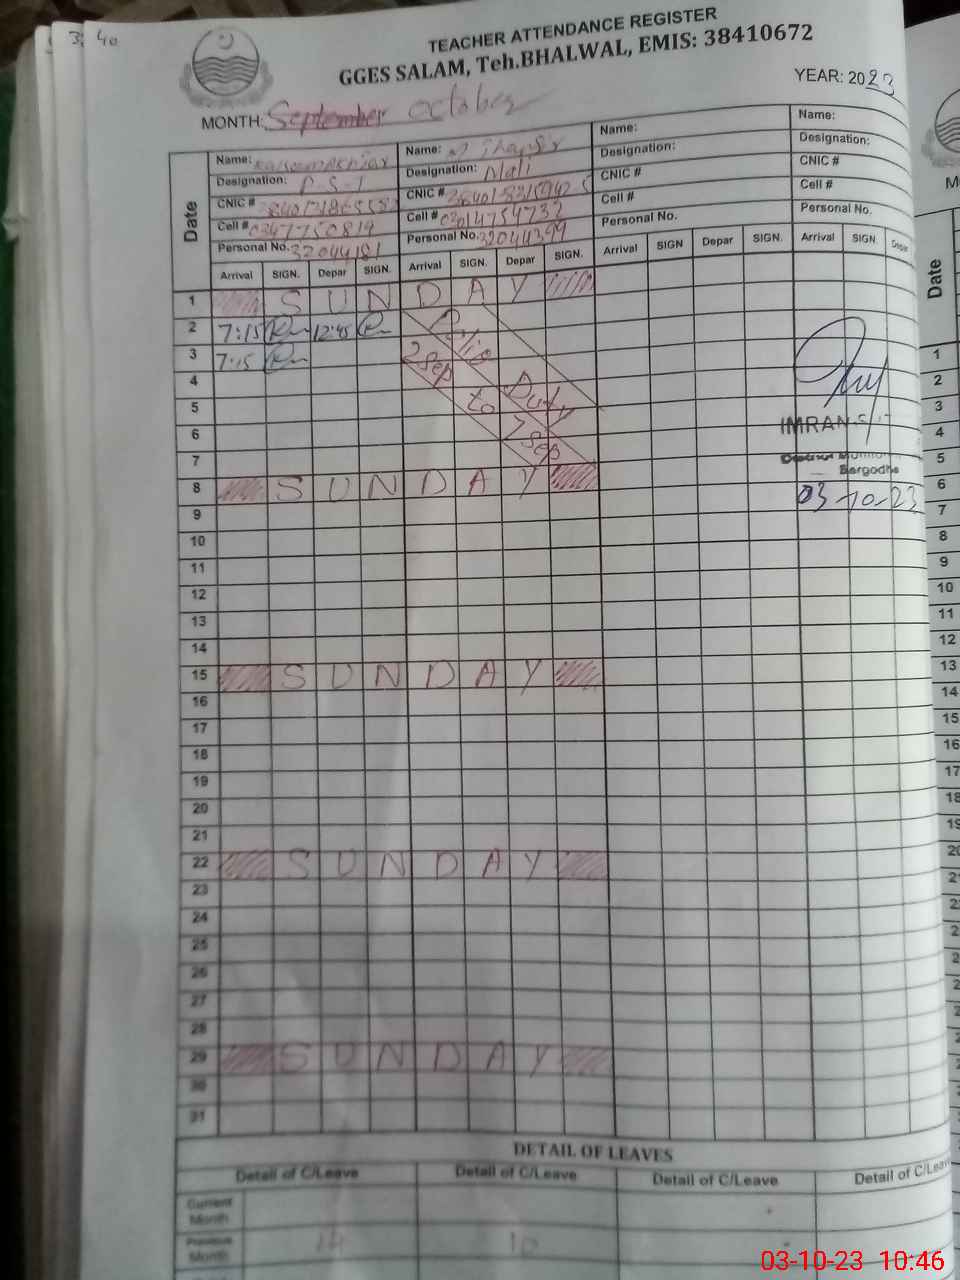 3. 40
TEACHER ATTENDANCE REGISTER
GGES SALAM, Teh.BHALWAL, EMIS: 38410672
YEAR: 2023
MONTH: September October
Name:
Designation: P-S-T
CNIC #
Cell #
Personal No. 32044181
Name:
Designation: Mali
CNIC #
Cell # 03014754732
Personal No. 32044399
Name:
Designation:
CNIC #
Cell #
Personal No.
Name:
Designation:
CNIC #
Cell #
Personal No.
Date Arrival SIGN. Depar SIGN. Arrival SIGN. Depar SIGN. Arrival SIGN Depar SIGN. Arrival SIGN. Depar
1 SUNDAY
2 7:15 12:45
3 7:15
4
5
6
7
Polio Duty
2 Sep to 7 Sep
IMRAN
Sargodha
03-10-23
8 SUNDAY
9
10
11
12
13
14
15 SUNDAY
16
17
18
19
20
21
22 SUNDAY
23
24
25
26
27
28
29 SUNDAY
30
31
DETAIL OF LEAVES
Detail of C/Leave Detail of C/Leave Detail of C/Leave Detail of C/Leave
Current Month
Previous Month 14 10
Date
1
2
3
4
5
6
7
8
9
10
11
12
13
14
15
16
17
18
19
20
03-10-23 10:46